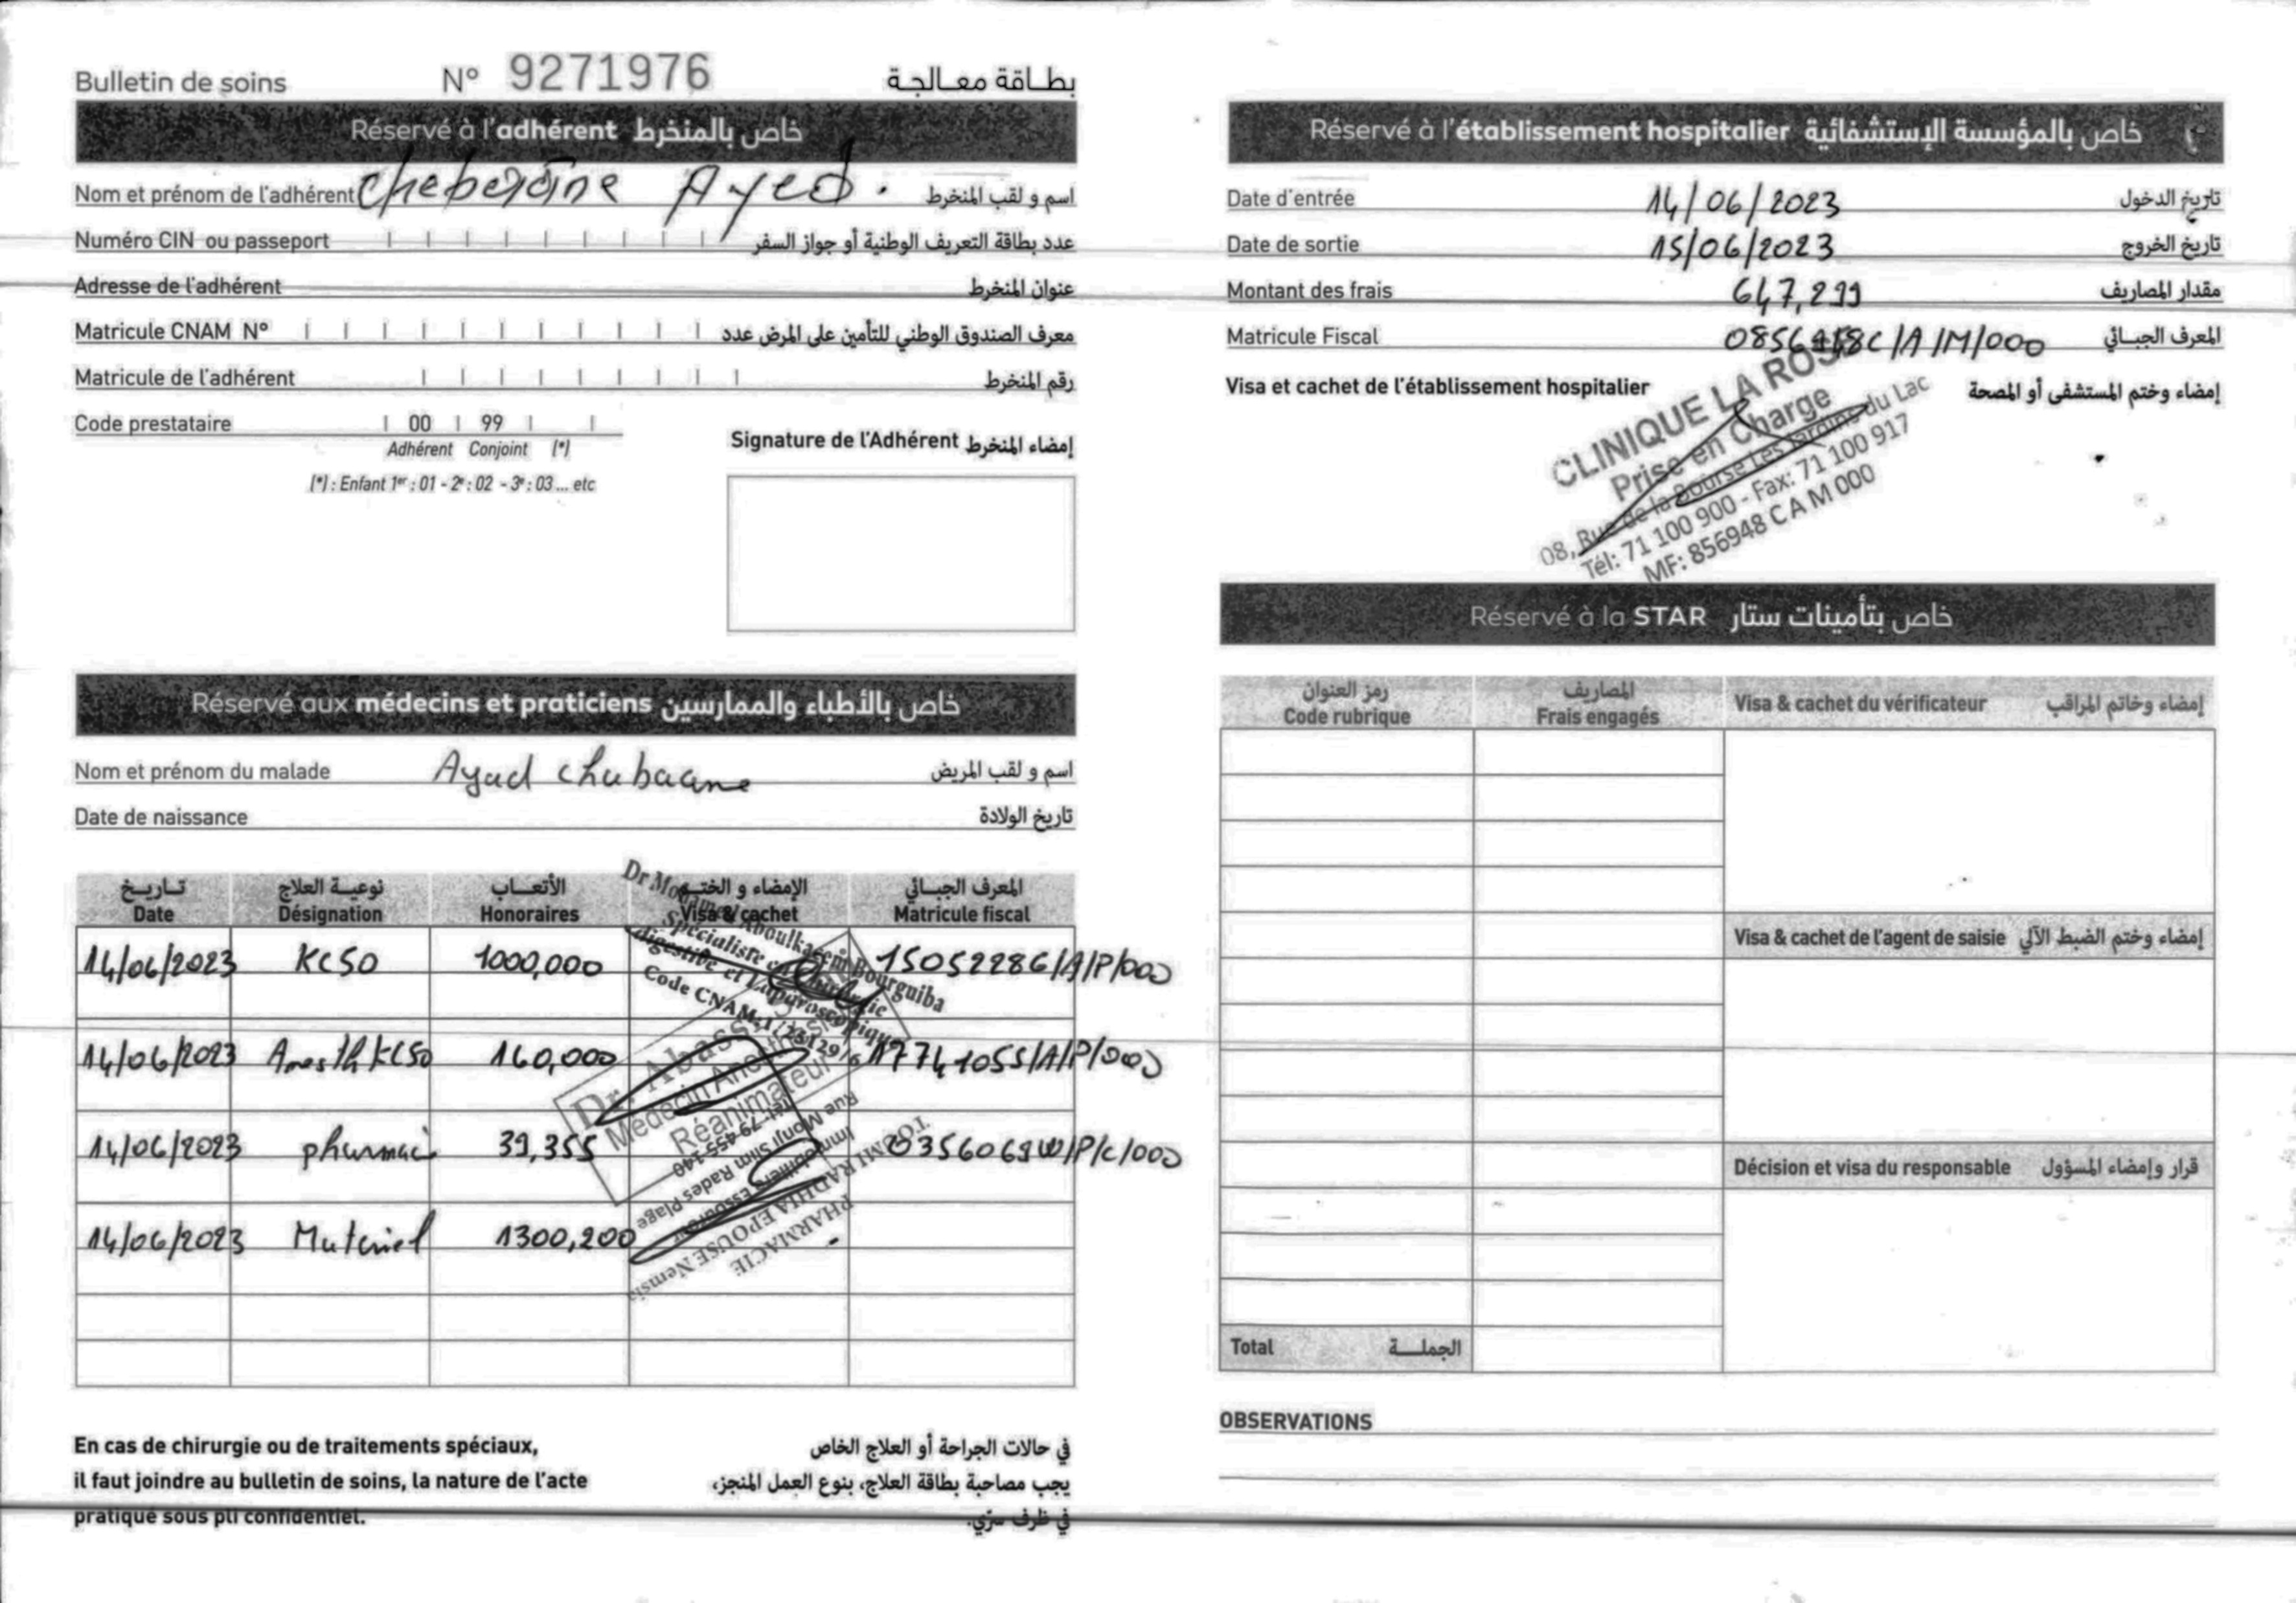 Bulletin de soins N° 9271976 بطاقة معالجة
Réservé à l'adhérent خاص بالمنخرط
Nom et prénom de l'adhérent Ayed . اسم و لقب المنخرط
Numéro CIN ou passeport عدد بطاقة التعريف الوطنية أو جواز السفر
Adresse de l'adhérent عنوان المنخرط
Matricule CNAM N° معرف الصندوق الوطني للتأمين على المرض عدد
Matricule de l'adhérent رقم المنخرط
Code prestataire 00 99
Adhérent Conjoint (*)
(*) : Enfant 1er : 01 - 2e : 02 - 3e : 03 ... etc
Signature de l'Adhérent إمضاء المنخرط
Réservé aux médecins et praticiens خاص بالأطباء والممارسين
Nom et prénom du malade اسم و لقب المريض
Date de naissance تاريخ الولادة
تاريخ نوعية العلاج الأتعاب الإمضاء و الختم المعرف الجبائي
Date Désignation Honoraires Visa & cachet Matricule fiscal
14/06/2023 KC50 1000,000 1505228G/A/P/000
14/06/2023 Anesth KC50 160,000 1774105S/A/P/000
14/06/2023 pharmaci 39,355 0356069W/P/C/000
14/06/2023 Materiel 1300,200
Dr Mohamed Aboulkacem Bourguiba
Spécialiste en Chirurgie
digestive et Laparoscopique
Code CNAM:
Médecin Anesthésiste
Réanimateur
PHARMACIE
TOUMI RADHIA EPOUSE Nemsia
Rue Monji Slim Rades Plage
Tél: 79 455 140
En cas de chirurgie ou de traitements spéciaux,
il faut joindre au bulletin de soins, la nature de l'acte
pratiqué sous pli confidentiel.
في حالات الجراحة أو العلاج الخاص
يجب مصاحبة بطاقة العلاج، بنوع العمل المنجز،
في ظرف سرّي.
Réservé à l'établissement hospitalier خاص بالمؤسسة الإستشفائية
Date d'entrée 14/06/2023 تاريخ الدخول
Date de sortie 15/06/2023 تاريخ الخروج
Montant des frais 647,299 مقدار المصاريف
Matricule Fiscal 0856948C/A/M/000 المعرف الجبائي
Visa et cachet de l'établissement hospitalier إمضاء وختم المستشفى أو المصحة
CLINIQUE LA ROSE
Prise en Charge
08, Rue de la Bourse Les Jardins du Lac
Tél: 71 100 900 - Fax: 71 100 917
MF: 856948 C A M 000
Réservé à la STAR خاص بتأمينات ستار
رمز العنوان المصاريف
Code rubrique Frais engagés Visa & cachet du vérificateur إمضاء وخاتم المراقب
Visa & cachet de l'agent de saisie إمضاء وختم الضبط الآلي
Décision et visa du responsable قرار وإمضاء المسؤول
Total الجملة
OBSERVATIONS